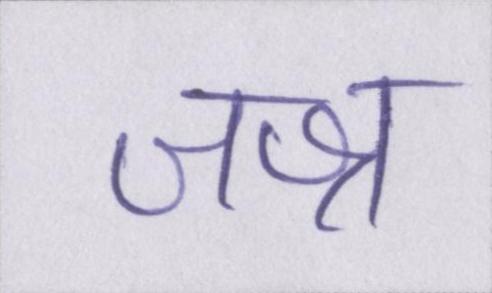 जश्न